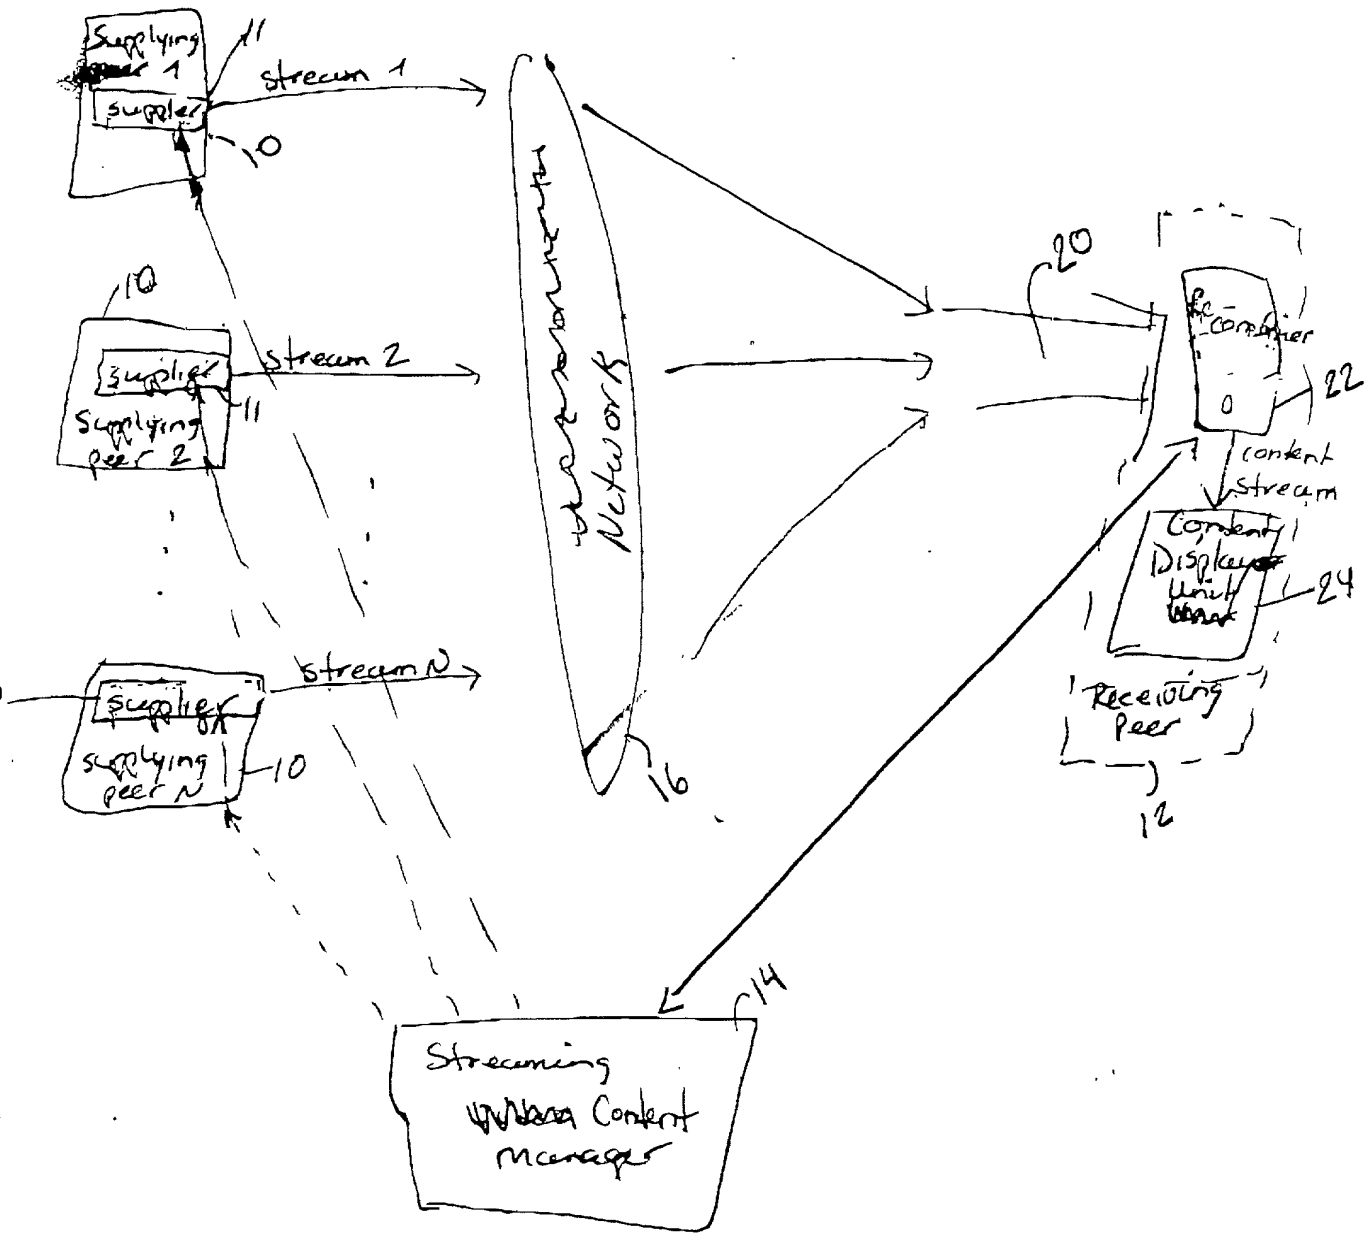 Supplying
peer 1
11
stream 1
suppler
10
10
supplier
stream 2
11
Supplying
peer 2
stream N
supplier
supplying
peer N
10
Network
16
20
combiner
22
content
stream
Content
Display
Unit
24
Receiving
Peer
12
14
Streaming
Content
Manager